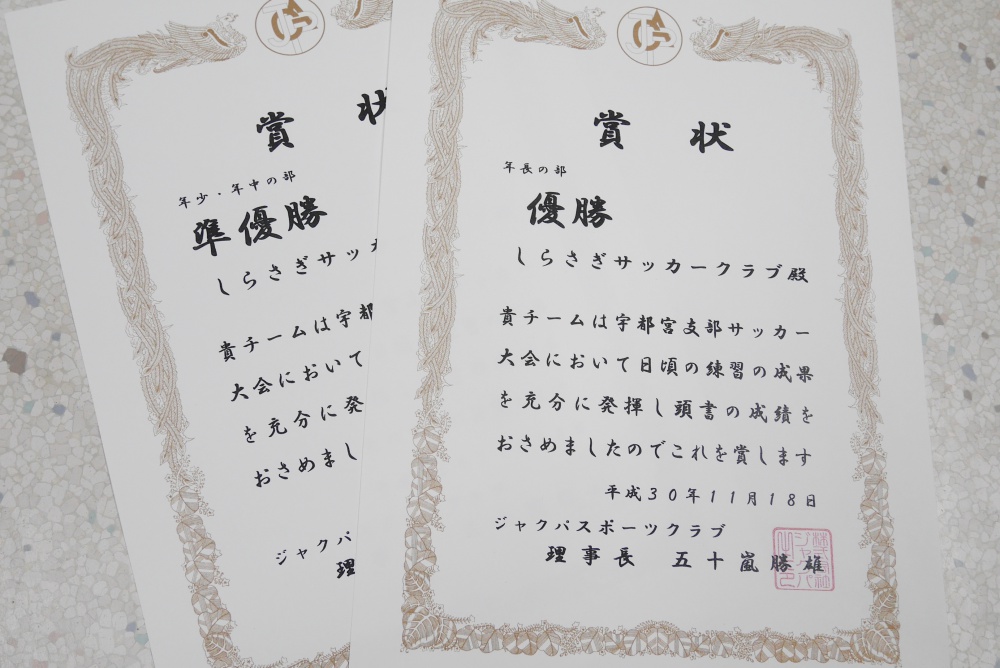 賞状
年少・年中の部
準優勝
しらさぎサッカ
貴チームは宇都
大会において
を充分に発
おさめまし
ジャクパ
理
賞状
年長の部
優勝
しらさぎサッカークラブ殿
貴チームは宇都宮支部サッカー
大会において日頃の練習の成果
を充分に発揮し頭書の成績を
おさめましたのでこれを賞します
平成30年11月18日
ジャクパスポーツクラブ
理事長 五十嵐勝雄